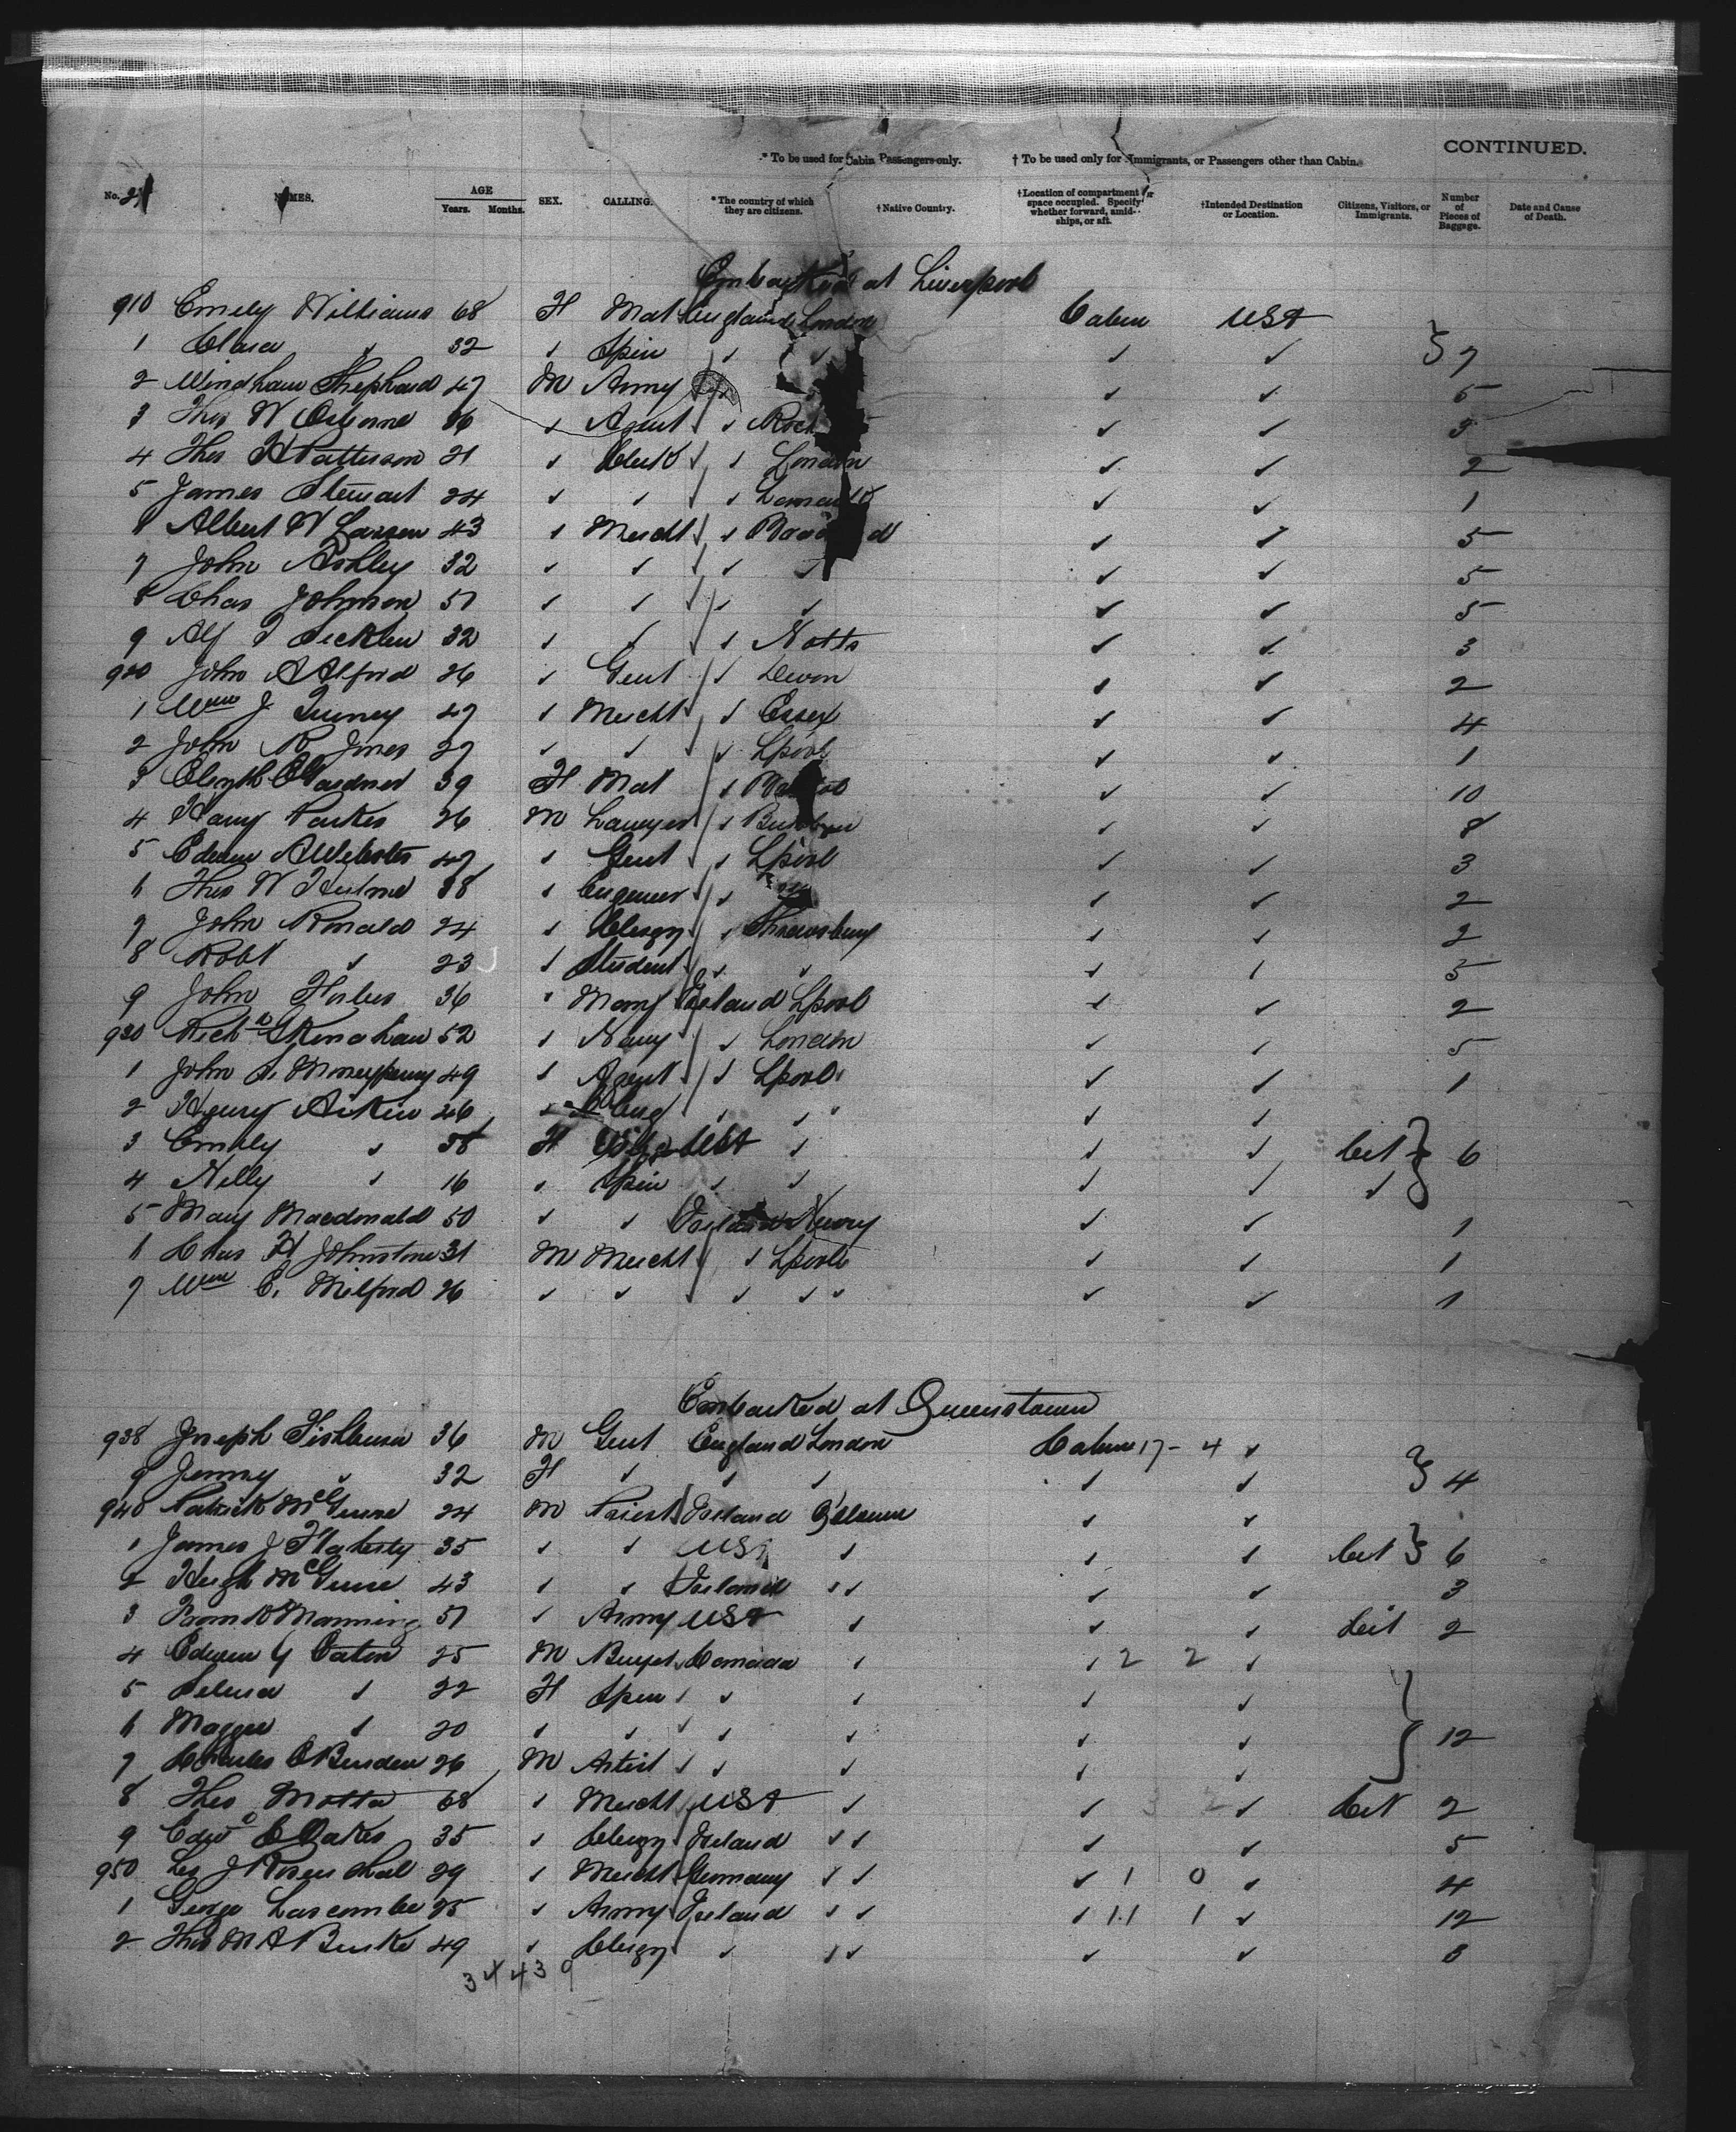 CONTINUED.
* To be used for Cabin Passengers only. † To be used only for Immigrants, or Passengers other than Cabin.
No. NAMES. AGE Years. Months. SEX. CALLING. * The country of which they are citizens. † Native Country. † Location of compartment or space occupied. Specify whether forward, amidships, or aft. † Intended Destination or Location. Citizens, Visitors, or Immigrants. Number of Pieces of Baggage. Date and Cause of Death.
Embarked at Liverpool
910 Emily Williams 68 F Mat England London Cabin USA
1 Clara ✓ 32 ✓ Spin ✓ ✓ ✓ ✓ } 7
2 Windham Shephard 47 M Army ✓ ✓ ✓ 5
3 Thos W Osborne 36 ✓ Agent ✓ ✓ ✓
4 Thos H Patterson 21 ✓ Clerk ✓ London ✓ ✓ 2
5 James Stewart 24 ✓ ✓ ✓ ✓ ✓ 1
6 Albert W 43 ✓ Mercht ✓ ✓ ✓ 5
7 John Ashley 32 ✓ ✓ ✓ ✓ ✓ ✓ 5
8 Chas Johnson 51 ✓ ✓ ✓ ✓ ✓ ✓ 5
9 Alf 32 ✓ ✓ ✓ Notts ✓ ✓ 3
920 John A Alford 26 ✓ Gent ✓ Devon ✓ ✓ 2
1 Wm J 47 ✓ Mercht ✓ Essex ✓ ✓ 4
2 John R Jones 27 ✓ ✓ ✓ Lpool ✓ ✓ 1
3 Gardner 39 F Mat ✓ ✓ ✓ 10
4 Harry Parkes 26 M Lawyer ✓ ✓ ✓ 8
5 Edwin A Webster 47 ✓ Gent ✓ Lpool ✓ ✓ 3
6 Thos W Hulme 38 ✓ Engineer ✓ ✓ ✓ 2
7 John Ronald 24 ✓ Clergy ✓ Shrewsbury ✓ ✓ 2
8 Robt ✓ 23 ✓ Student ✓ ✓ ✓ ✓ 5
9 John Forbes 36 ✓ Ireland Lpool ✓ ✓ 2
930 Richd 52 ✓ Navy ✓ London ✓ ✓ 5
1 John S. Moneypenny 49 ✓ Agent ✓ Lpool ✓ ✓ 1
2 Henry Aikin 46 ✓ ✓ ✓ ✓ ✓
3 Emily ✓ 38 F USA ✓ ✓ ✓ Cit } 6
4 Nelly ✓ 16 ✓ Spin ✓ ✓ ✓ ✓ ✓
5 Mary Macdonald 50 ✓ ✓ Ireland Newry ✓ ✓ 1
6 Chas H Johnstone 31 M Mercht ✓ Lpool ✓ ✓ 1
7 Wm C. Milford 26 ✓ ✓ ✓ ✓ ✓ ✓ ✓ 1
Embarked at Queenstown
938 Joseph Fishburn 36 M Gent England London Cabin 17 - 4 ✓
9 Jenny ✓ 32 F ✓ ✓ ✓ ✓ ✓ } 4
940 Patrick McGuire 24 M Priest Ireland ✓ ✓
1 James J Flaherty 35 ✓ ✓ USA ✓ ✓ ✓ Cit } 6
2 Hugh McGuire 43 ✓ ✓ Ireland ✓ ✓ ✓ ✓ 3
3 Frank Manning 51 ✓ Army USA ✓ ✓ ✓ Cit 2
4 Edwin Y Eaton 25 M Canada ✓ ✓ 2 2 ✓
5 Selina ✓ 22 F Spin ✓ ✓ ✓ ✓
6 Maggie ✓ 20 ✓ ✓ ✓ ✓ ✓ ✓ } 12
7 Charles C Burden 26 M Artist ✓ ✓ ✓ ✓
8 Thos Motta 68 ✓ Mercht USA ✓ ✓ ✓ Cit 2
9 Edwd E Oakes 35 ✓ Clergy Ireland ✓ ✓ ✓ ✓ 5
950 J Rosenthal 29 ✓ Mercht Germany ✓ ✓ ✓ 1 0 ✓ 4
1 George Lascombe 25 ✓ Army Ireland ✓ ✓ ✓ 11 1 ✓ 12
2 Thos M A Burke 49 ✓ Clergy ✓ ✓ ✓ ✓ ✓ 3